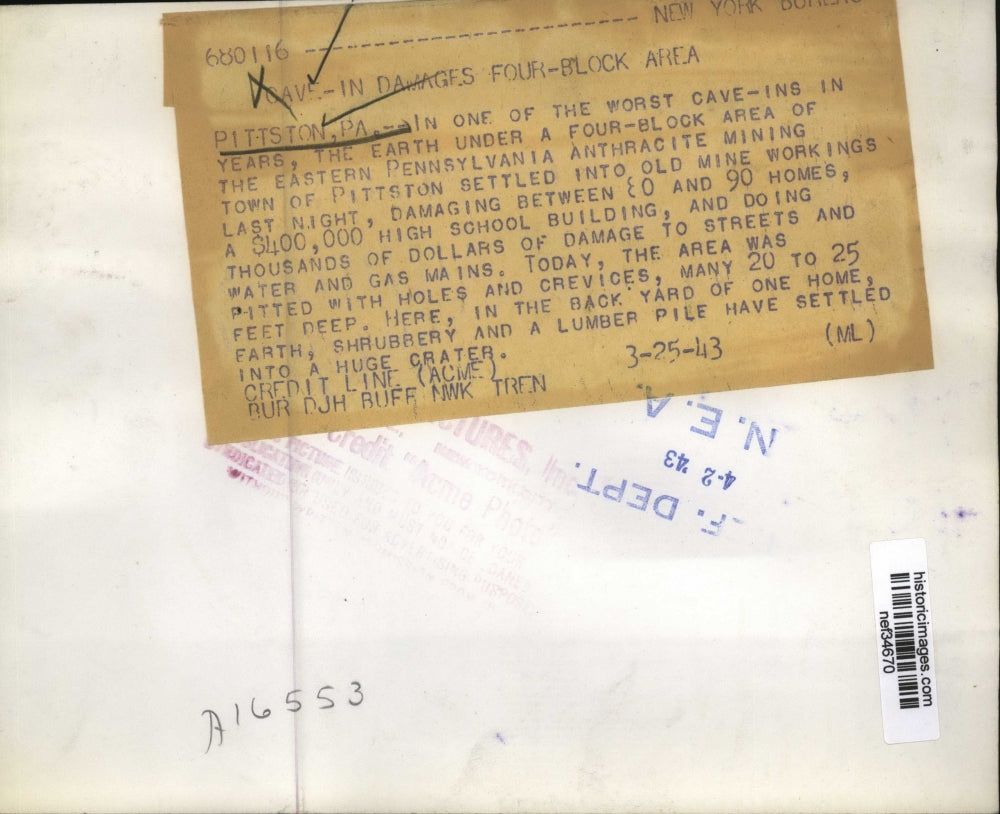 680116 -------------------------------- NEW YORK BUREAU
CAVE-IN DAMAGES FOUR-BLOCK AREA
PITTSTON, PA.--IN ONE OF THE WORST CAVE-INS IN
YEARS, THE EARTH UNDER A FOUR-BLOCK AREA OF
THE EASTERN PENNSYLVANIA ANTHRACITE MINING
TOWN OF PITTSTON SETTLED INTO OLD MINE WORKINGS
LAST NIGHT, DAMAGING BETWEEN 80 AND 90 HOMES,
A $400,000 HIGH SCHOOL BUILDING, AND DOING
THOUSANDS OF DOLLARS OF DAMAGE TO STREETS AND
WATER AND GAS MAINS. TODAY, THE AREA WAS
PITTED WITH HOLES AND CREVICES, MANY 20 TO 25
FEET DEEP. HERE, IN THE BACK YARD OF ONE HOME,
EARTH, SHRUBBERY AND A LUMBER PILE HAVE SETTLED
INTO A HUGE CRATER.
CREDIT LINE (ACME) 3-25-43 (ML)
BUR DJH BUFF NWK TREN
N. E. A.
4-2 '43
F. DEPT.
Credit "Acme Photo
historicimages.com
nef34670
A16553